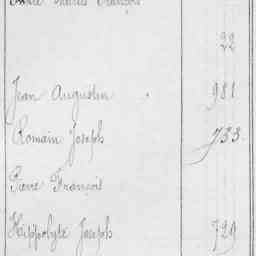 François
22
Jean Augustin 981
Romain Joseph 733
Pierre François
Hippolyte Joseph 729